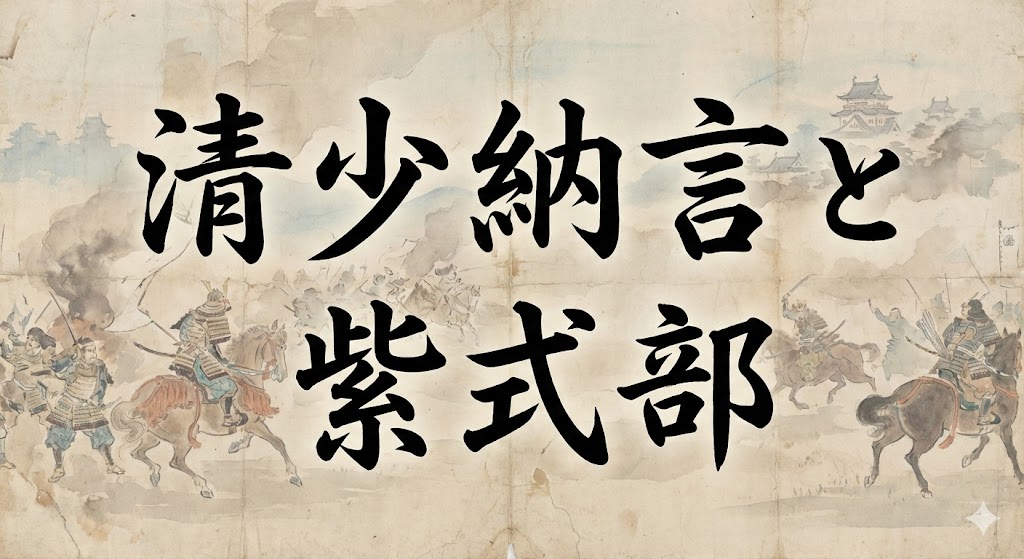 清少納言と
紫式部